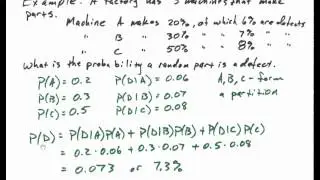 Example: A factory has 3 machines that make
parts.
Machine A makes 20%, of which 6% are defects
" B " 30% " 7% "
" C " 50% " 8% "
What is the probability a random part is a defect.
P(A) = 0.2 P(D|A) = 0.06 A, B, C - form
P(B) = 0.3 P(D|B) = 0.07 a partition
P(C) = 0.5 P(D|C) = 0.08
P(D) = P(D|A)P(A) + P(D|B)P(B) + P(D|C)P(C)
= 0.2·0.06 + 0.3·0.07 + 0.5·0.08
= 0.073 or 7.3%